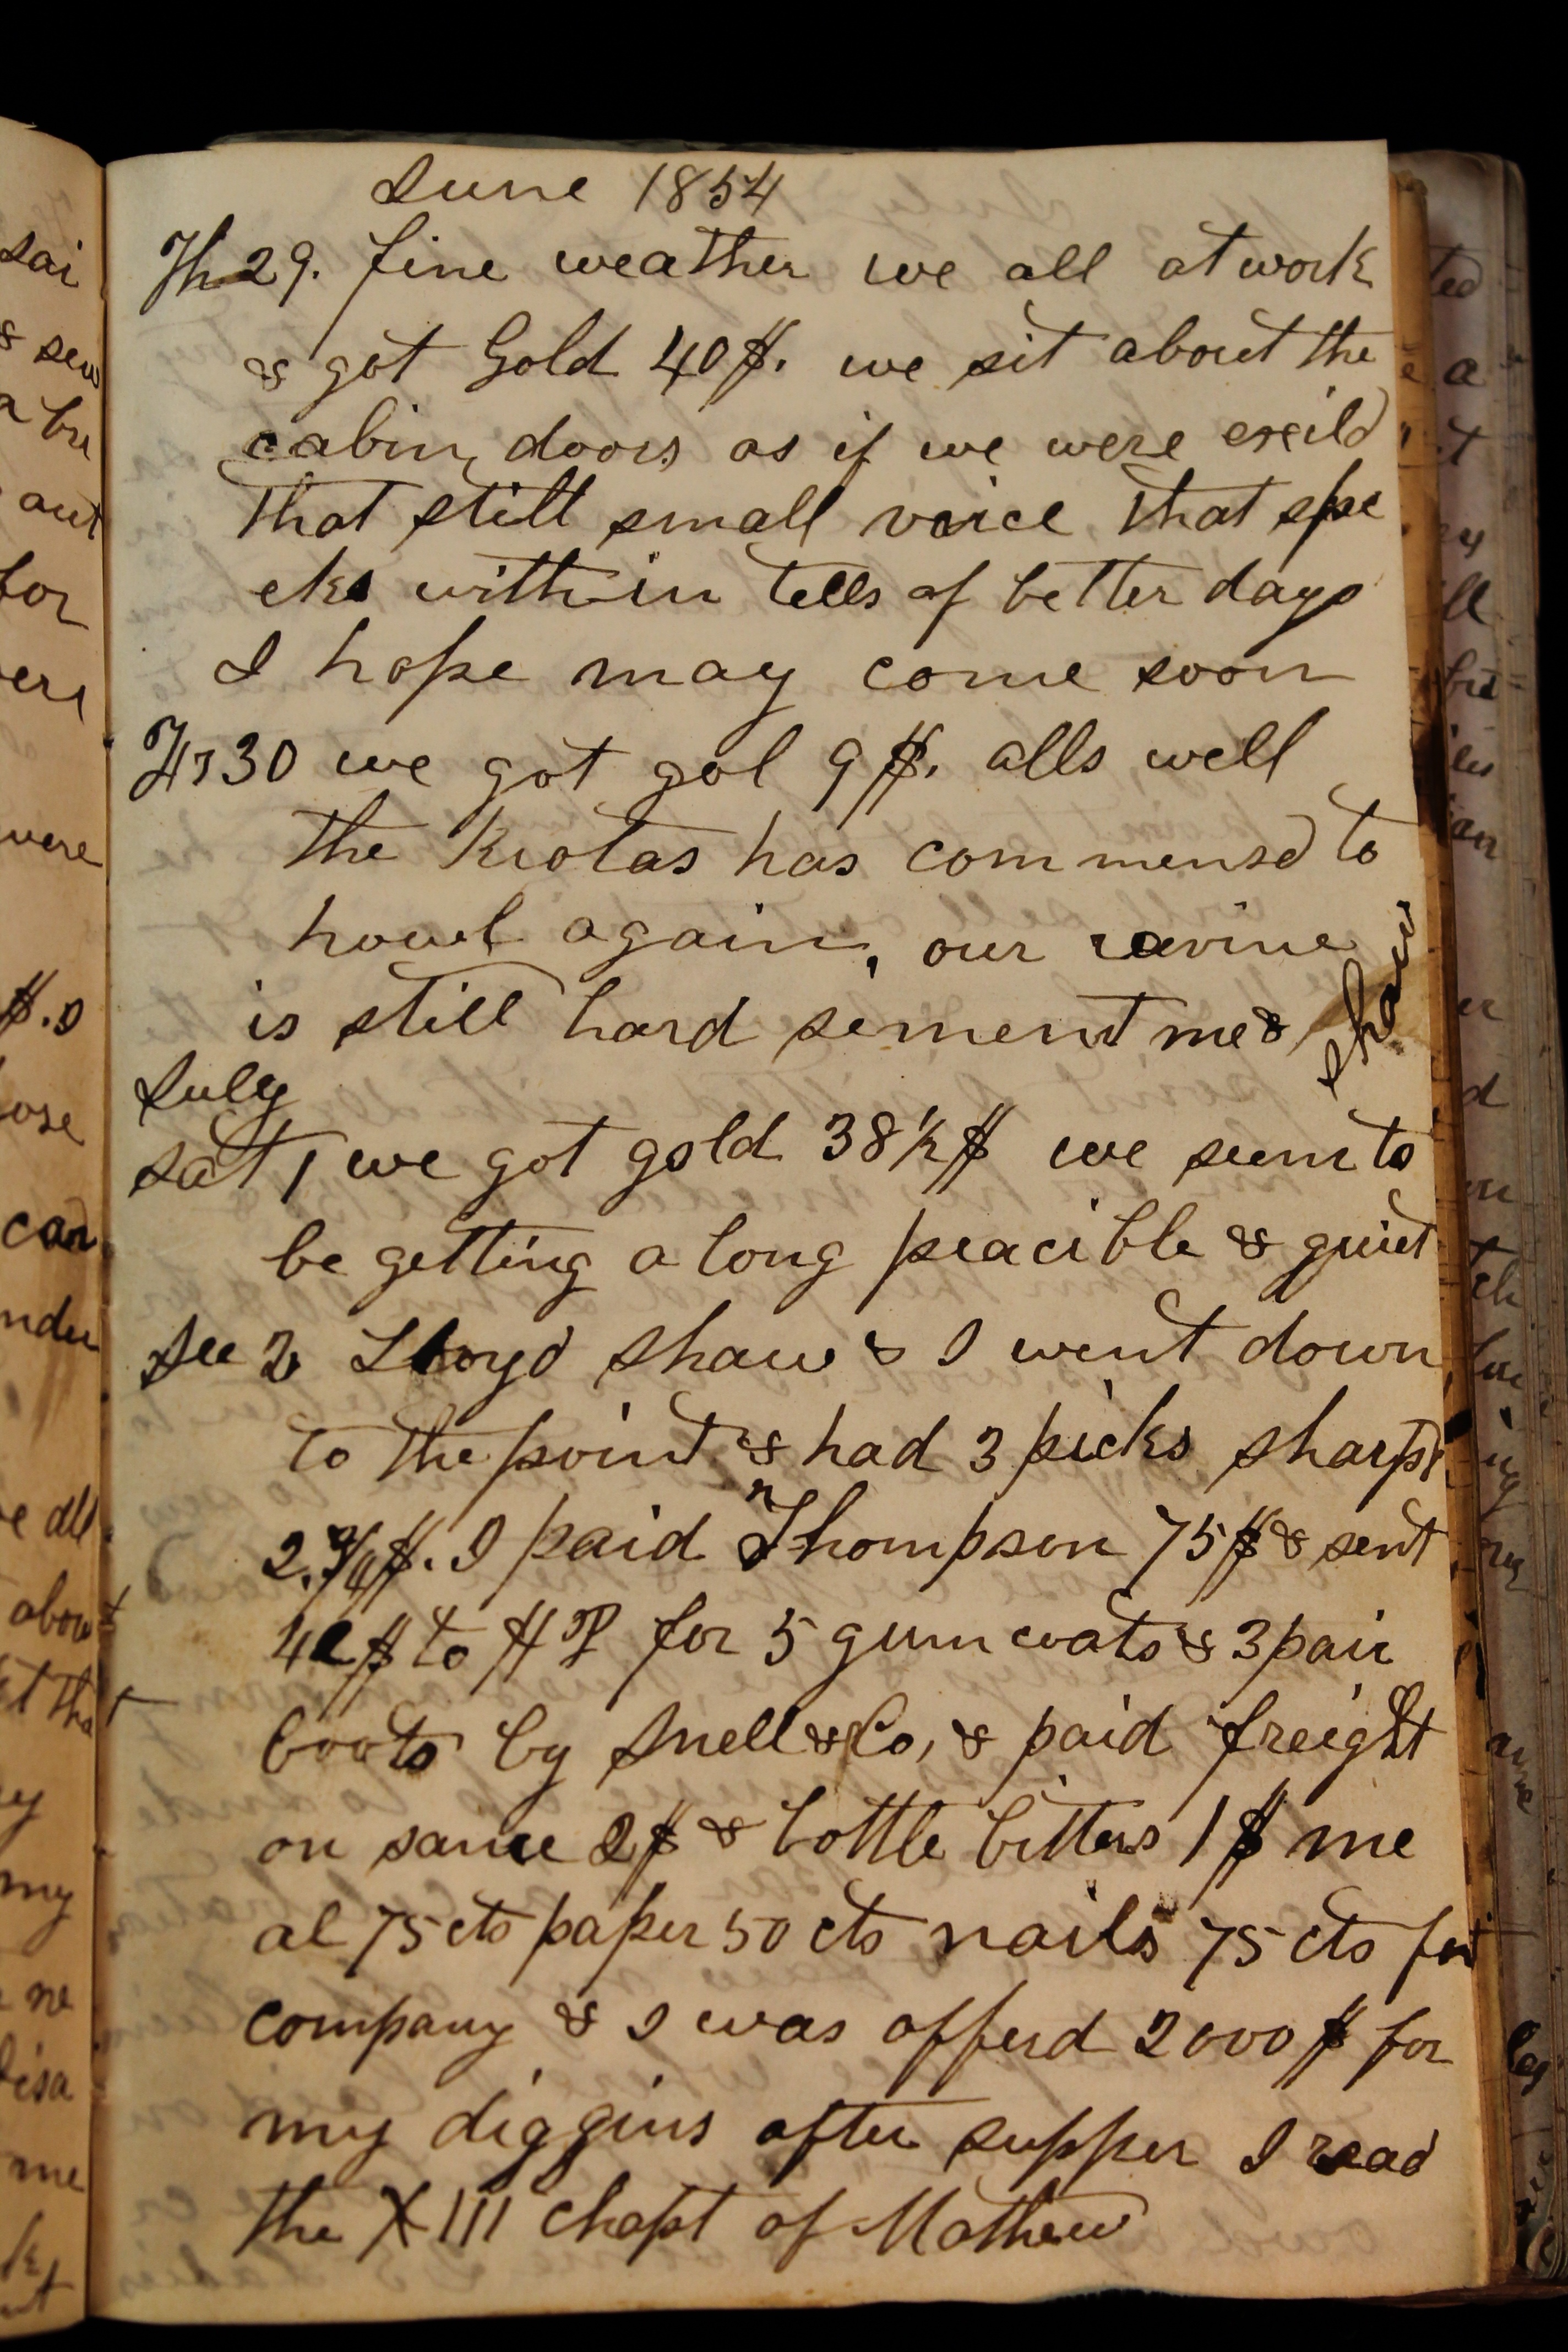 June 1854
Th 29. fine weather we all at work
& got Gold 40$. we sit about the
cabin doors as if we were exild
that still small voice that spe
eks within tells of better days
I hope may come soon
Fr 30 we got gol 9$. alls well
the Kiotas has commensd to
howl again, our ravine
is still hard sement me &
Shaw
July
Sat 1 we got gold 38½$ we seem to
be getting along peacible & quiet
Su 2 Lloyd Shaw & I went down
to the point & had 3 picks sharp
2.¾$. I paid Thompson 75$ & sent
42$ to H P for 5 gum coats & 3 pair
boots by Snell & Co, & paid freight
on same 2$ & bottle bitters 1$ me
al 75 cts paper 50 cts nails 75 cts for
company & I wasofferd 2000$ for
my diggins after supper I read
the XIII chapt of Mathew
sai
& sew
a bu
aut
for
were
$. I
ose
can
nder
all
about
my
ne
me